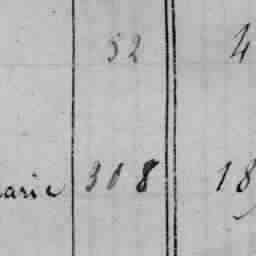 52 4
arie 308 18